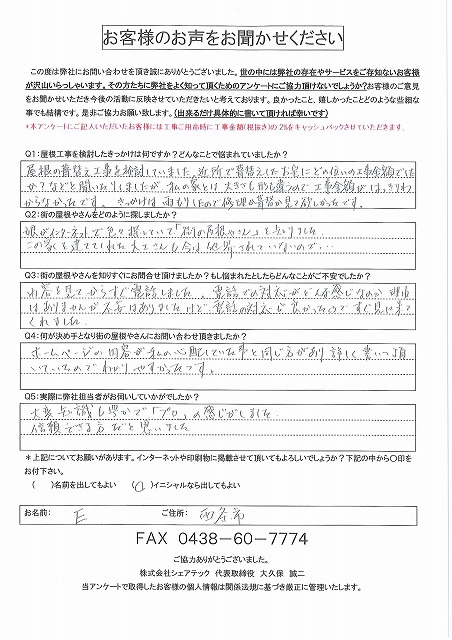 お客様のお声をお聞かせください
この度は弊社にお問い合わせを頂き誠にありがとうございました。世の中には弊社の存在やサービスをご存知ないお客様
が沢山いらっしゃいます。その方たちに弊社をよく知って頂くためのアンケートにご協力頂けないでしょうか?お客様のご意見
をお聞かせいただき今後の活動に反映させていただきたいと考えております。良かったこと、嬉しかったことどのような些細な
事でも結構です。是非ご協力お願い致します。(出来るだけ具体的に書いて頂ければ幸いです)
*本アンケートにご記入いただいたお客様には工事ご用命時に工事金額(税抜き)の2%をキャッシュバックさせていただきます。
Q1:屋根工事を検討したきっかけは何ですか?どんなことで悩まれていましたか?
屋根の葺替え工事を検討していました。近所で葺替えしたお宅にどの位の工事金額でした
か?などと聞いたりしましたが、私の家とは大きさも形も違うので工事金額がはっきりわ
からなかったです。きっかけは雨もりしたので修理か葺替か見て欲しかったです。
Q2:街の屋根やさんをどのように探しましたか?
娘がインターネットで色々探していて「街の屋根やさん」を知りました
この家を建ててくれた大工さんも今は他界されていないので…
Q3:街の屋根やさんを知りすぐにお問合せ頂けましたか?もし悩まれたとしたらどんなことがご不安でしたか?
内容を見てからすぐ電話しました。電話での対応がどんな感じなのか
はありませんが不安はありましたけど電話の対応が良かったのですぐ見に来て
くれました。
Q4:何が決め手となり街の屋根やさんにお問い合わせ頂きましたか?
ホームページの内容が私の心配していた事と同じ方があり詳しく書いて頂
いていたのでわかりやすかったです。
Q5:実際に弊社担当者がお伺いしていかがでしたか?
大変知識も豊かで「プロ」の感じがしました
信頼できる方だと思いました
*上記についてお願いがあります。インターネットや印刷物に掲載させて頂いてもよろしいでしょうか?下記の中から〇印を
お付下さい。
( )名前を出してもよい (〇)イニシャルなら出してもよい
お名前: E ご住所: 西条市
FAX 0438-60-7774
ご協力ありがとうございました。
株式会社シェアテック 代表取締役 大久保 誠二
当アンケートで取得したお客様の個人情報は関係法規に基づき厳正に管理いたします。